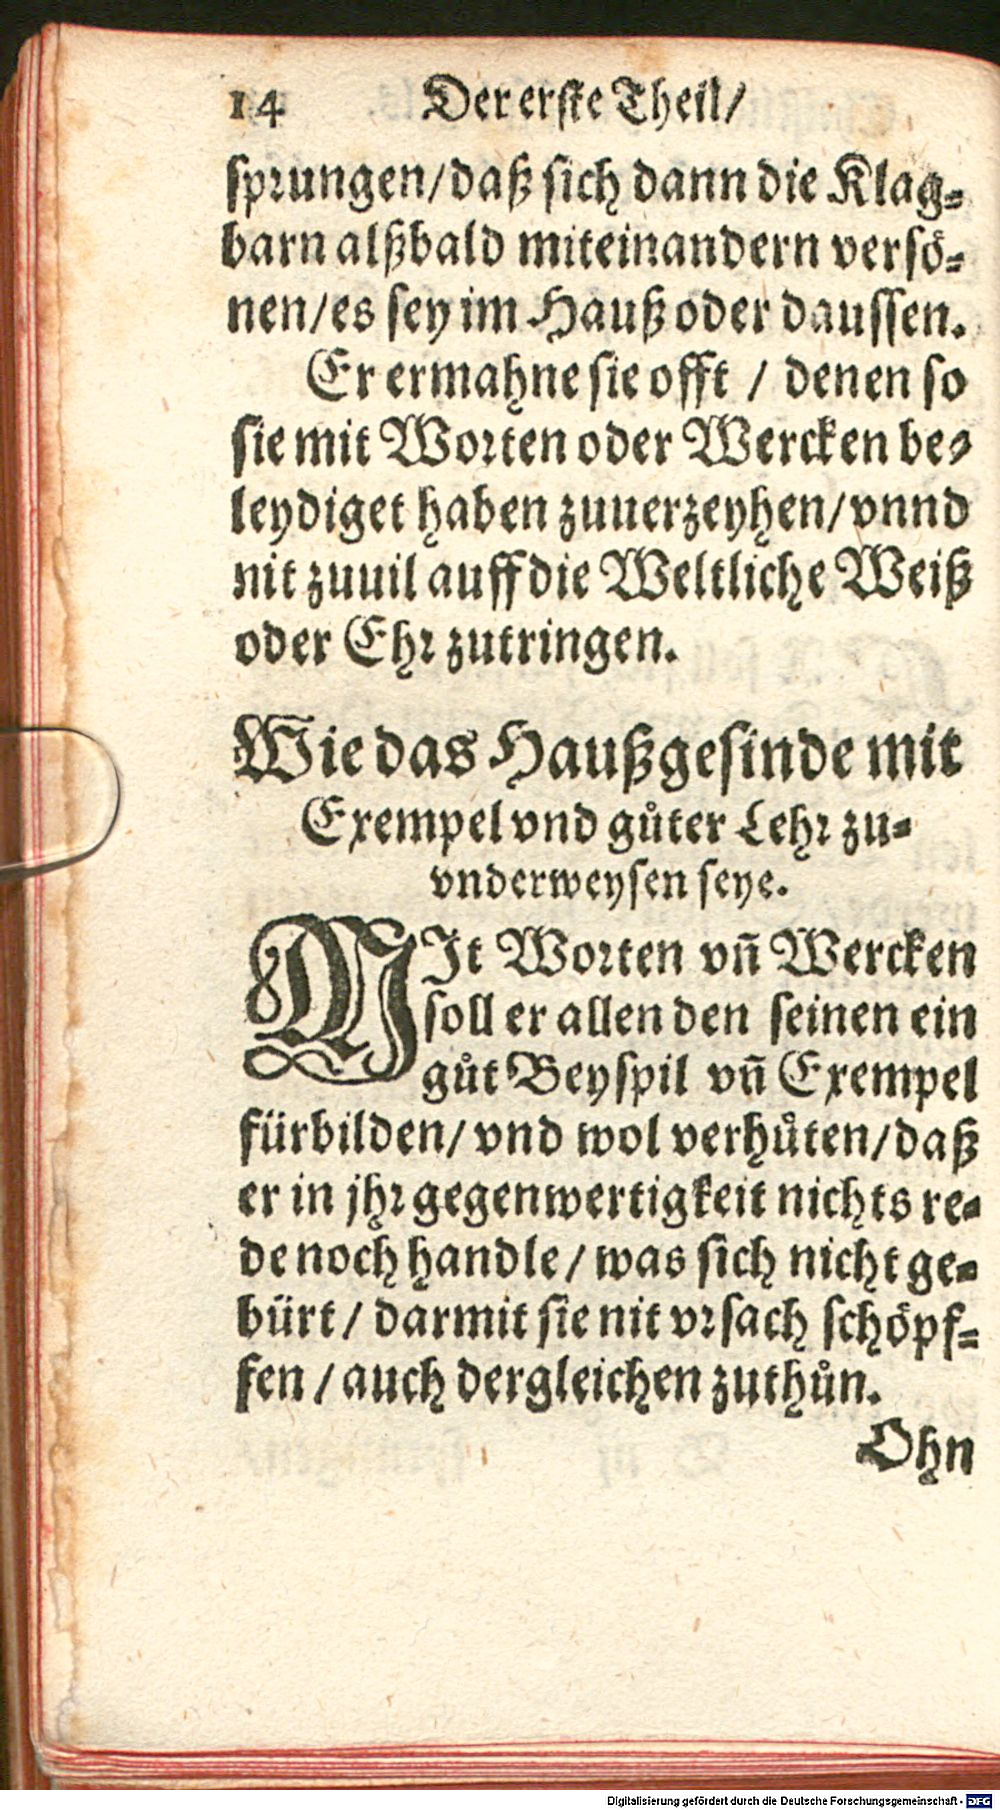 14 Der erste Theil/
sprungen/daß sich dann die Klag⸗
barn alßbald miteinandern versö⸗
nen/es sey im Hauß oder daussen.
Er ermahne sie offt / denen so
sie mit Worten oder Wercken be⸗
leydiget haben zuuerzeyhen/vnnd
nit zuuil auff die Weltliche Weiß
oder Ehr zutringen.
Wie das Haußgesinde mit
Exempel vnd gůter Lehr zu⸗
vnderweysen seye.
MIt Worten vn̄ Wercken
soll er allen den seinen ein
gůt Beyspil vn̄ Exempel
fürbilden/vnd wol verhůten/daß
er in jhr gegenwertigkeit nichts re⸗
de noch handle/was sich nicht ge⸗
bürt/ darmit sie nit vrsach schöpf⸗
fen/auch dergleichen zuthůn.
Ohn
Digitalisierung gefördert durch die Deutsche Forschungsgemeinschaft - DFG